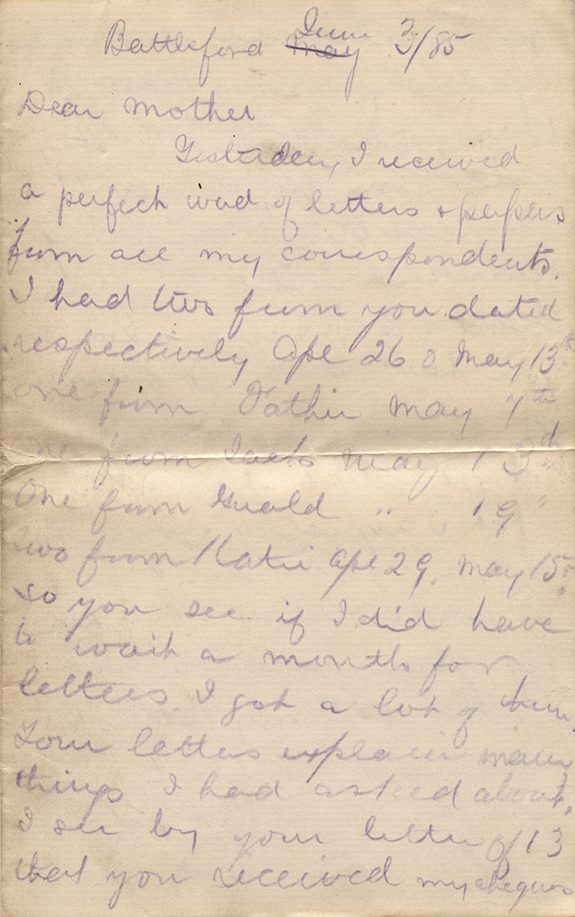 Battleford May June 3/85
Dear Mother
Yesterday I received
a perfect wad of letters & papers
from all my correspondents.
I had two from you dated
respectively Ape 26 & May 13th
one from Father May 7th
one from Jack May 13d
One from Guald " 19"
two from Katie Ape 29, May 15th
so you see if I did have
to wait a month for
letters I got a lot of them
Your letters explain many
things I had asked about.
I see by your letter of 13
that you received my cheques